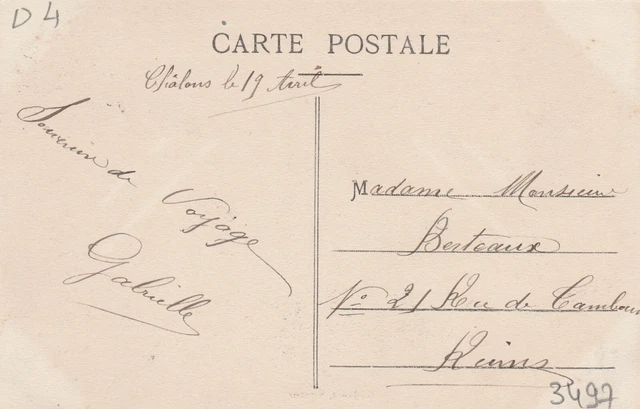 D4
CARTE POSTALE
Châlons le 19 Avril
Souvenir de
Voyage
Gabrielle
Madame Monsieur
Berteaux
No 21 Rue de Tambour
Reims
3497